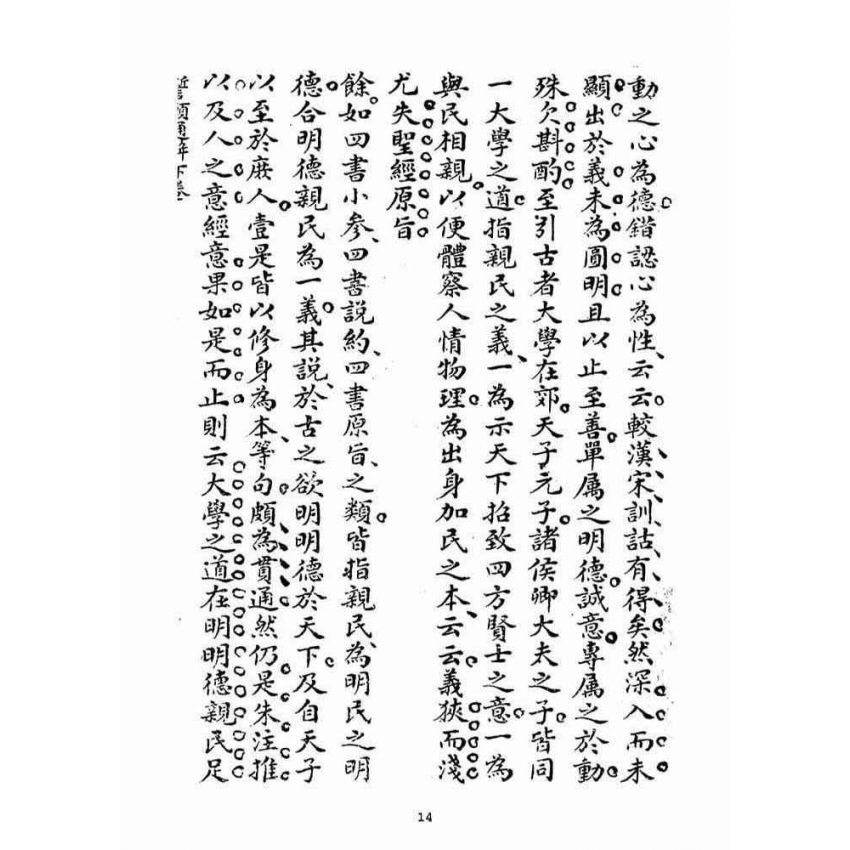 動之心為德錯認心為性、云云較漢、宋、訓、詁、有、得、矣。然深入而未
顯出於義未為圓明且以止至善單属之明德。誠意。專属之於動
殊欠斟酌至引古者大學在郊。天子元子。諸侯卿大夫之子。皆同
一大學之道。指親民之義、一為示天下招致四方賢士之意。一為
與民相親。以便體察人情物理。為出身加民之本、云云。義狹而淺
尤失聖經原旨
餘。如四書小參、四書說約、四書原旨、之類。皆指親民、為明民之明
德。合明德親民為一義。其說、於古之欲明明德於天下。及自天子
以至於庶人。壹是皆以修身為本、等句。頗為貫通。然仍是朱注推
以及人之意經意果如是而止則云大學之道在明明德親民足
下卷
14